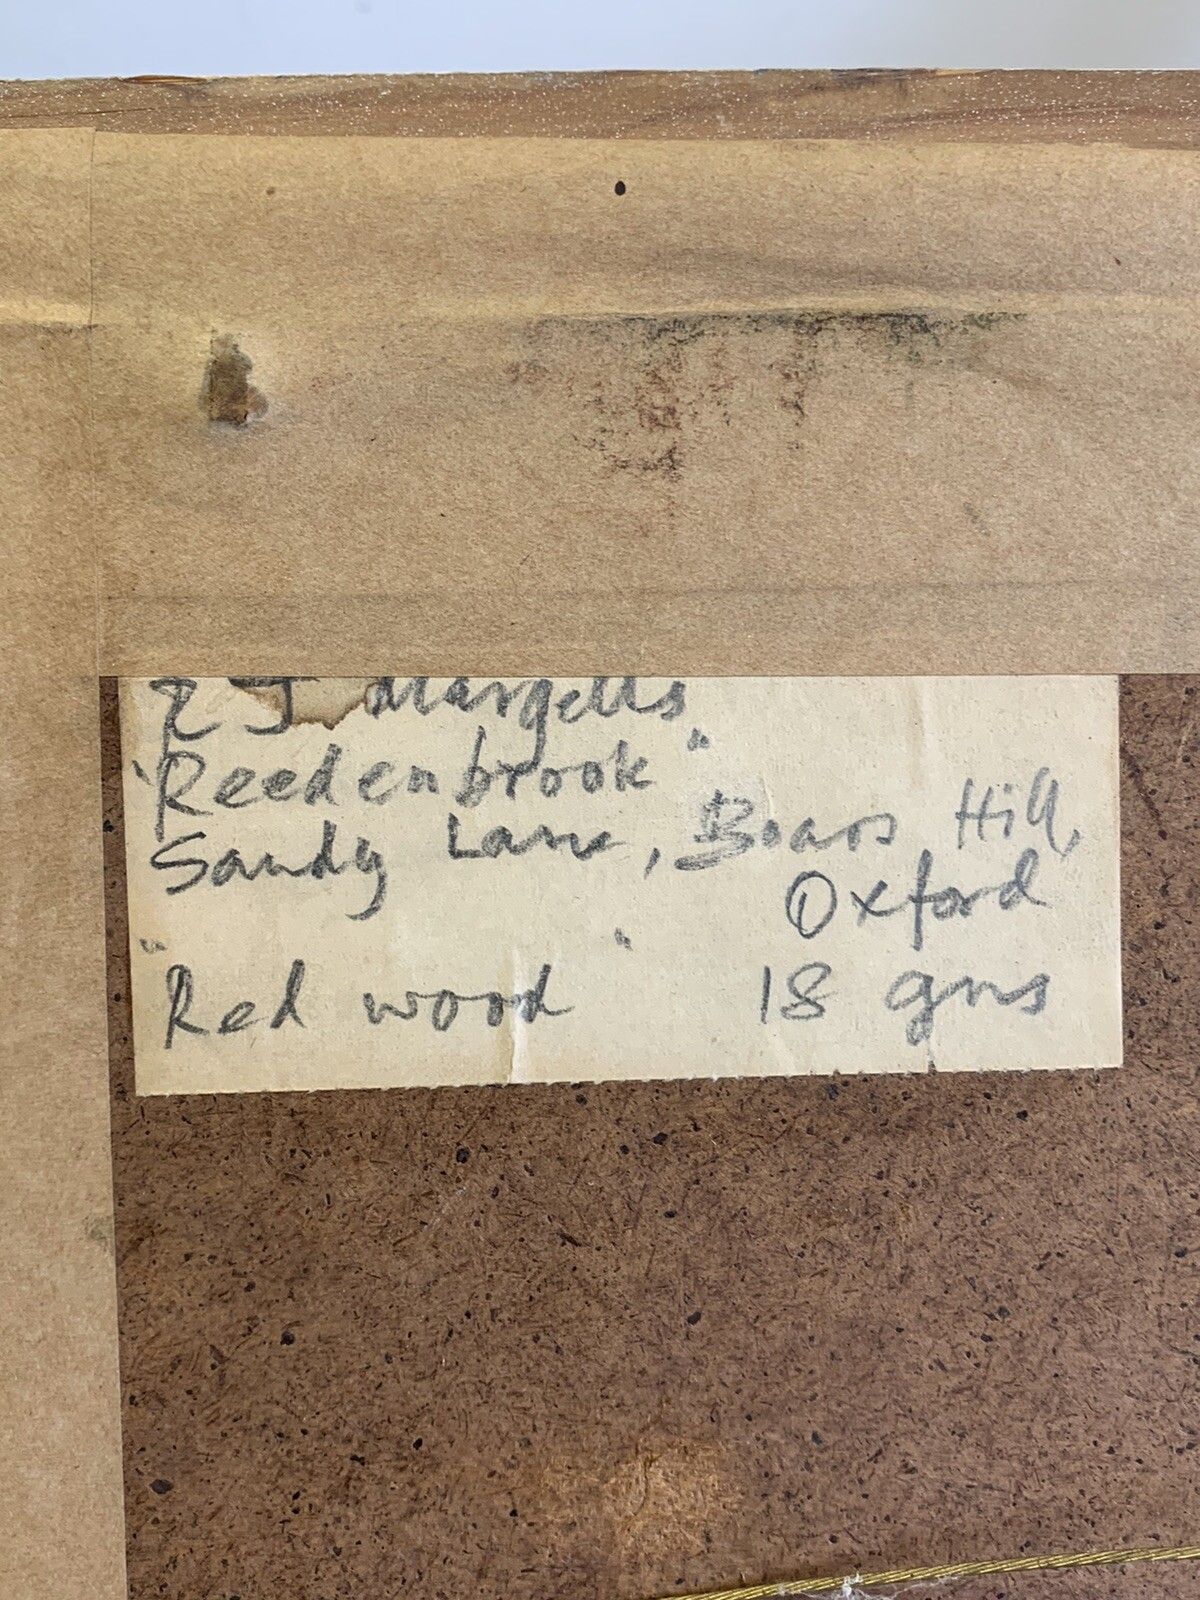 J Margetts
"Reedenbrook"
Sandy Lane, Boars Hill,
Oxford
"Red wood" 18 gns